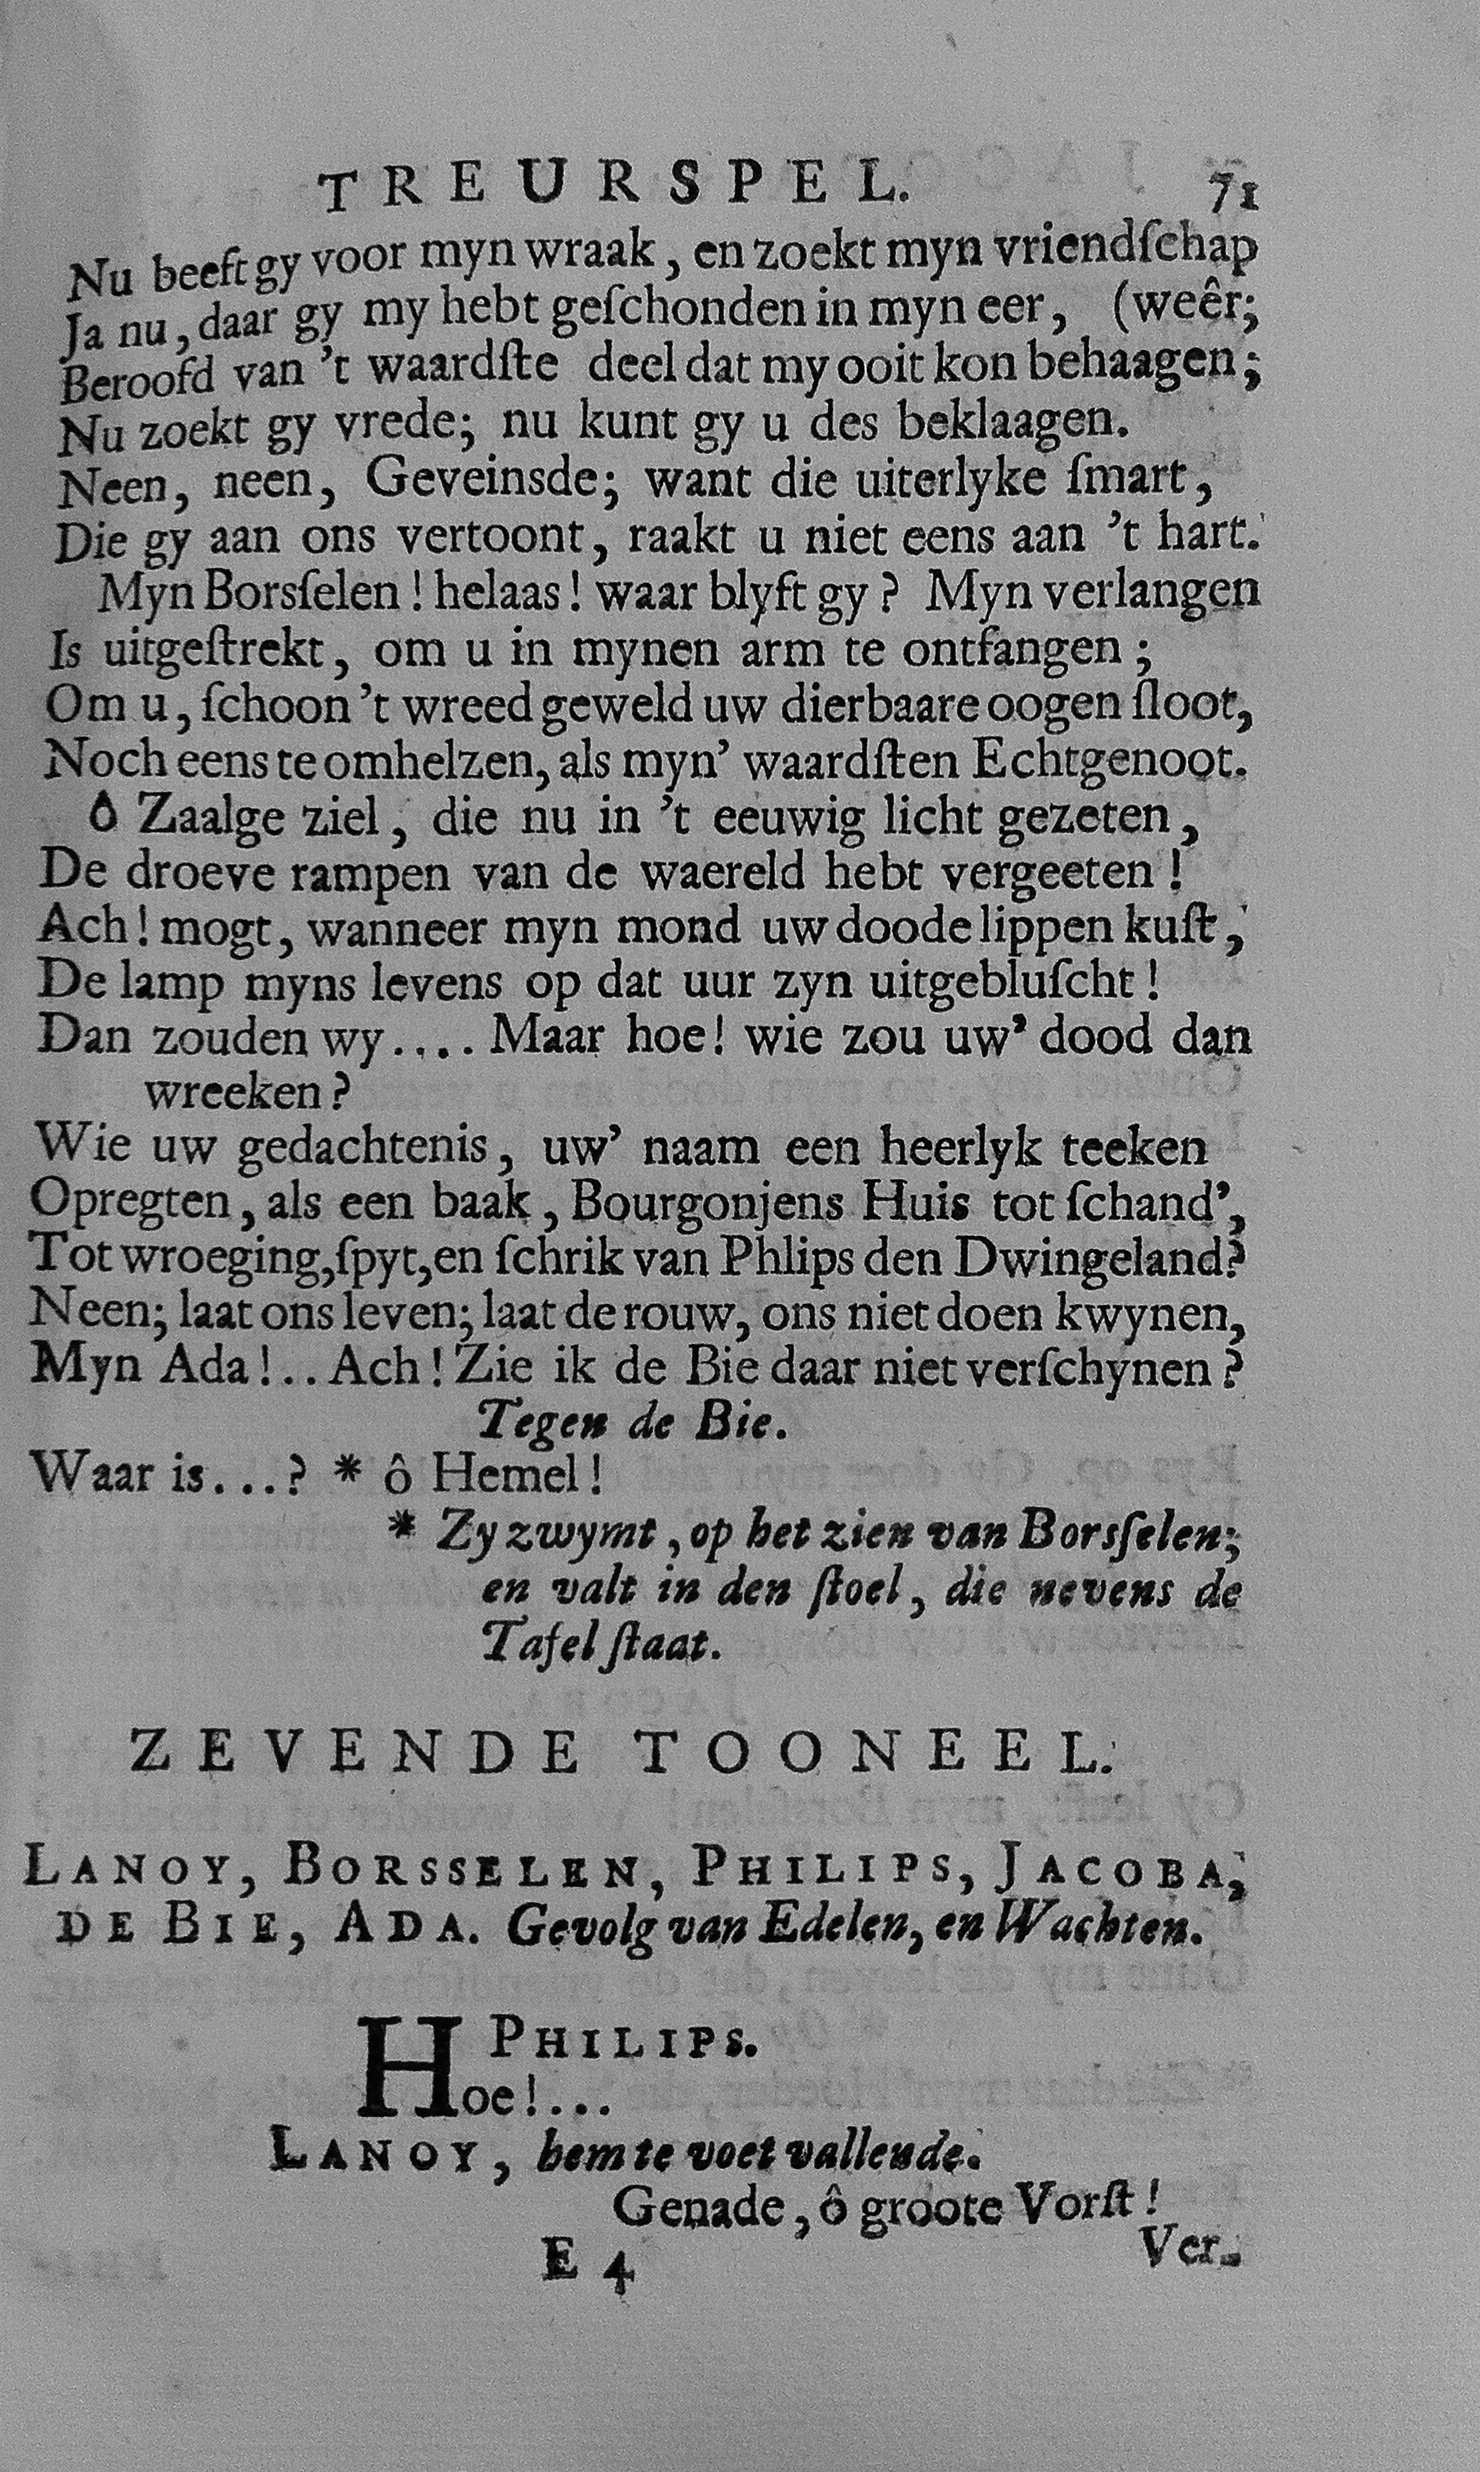 TREURSPEL. 71
Nu beeft gy voor myn wraak, en zoekt myn vriendſchap
Ja nu, daar gy my hebt geſchonden in myn eer, (weêr;
Beroofd van 't waardſte deel dat my ooit kon behaagen;
Nu zoekt gy vrede; nu kunt gy u des beklaagen.
Neen, neen, Geveinsde; want die uiterlyke ſmart,
Die gy aan ons vertoont, raakt u niet eens aan 't hart.
Myn Borsſelen! helaas! waar blyft gy? Myn verlangen
Is uitgeſtrekt, om u in mynen arm te ontfangen;
Om u, ſchoon 't wreed geweld uw dierbaare oogen ſloot,
Noch eens te omhelzen, als myn' waardſten Echtgenoot.
ô Zaalge ziel, die nu in 't eeuwig licht gezeten,
De droeve rampen van de waereld hebt vergeeten!
Ach! mogt, wanneer myn mond uw doode lippen kuſt,
De lamp myns levens op dat uur zyn uitgebluſcht!
Dan zouden wy.... Maar hoe! wie zou uw' dood dan
wreeken?
Wie uw gedachtenis, uw' naam een heerlyk teeken
Opregten, als een baak, Bourgonjens Huis tot ſchand',
Tot wroeging, ſpyt, en ſchrik van Phlips den Dwingeland?
Neen; laat ons leven; laat de rouw, ons niet doen kwynen,
Myn Ada!.. Ach! Zie ik de Bie daar niet verſchynen?
Tegen de Bie.
Waar is...? * ô Hemel!
* Zy zwymt, op het zien van Borsſelen;
en valt in den ſtoel, die nevens de
Tafel ſtaat.
ZEVENDE TOONEEL.
LANOY, BORSSELEN, PHILIPS, JACOBA,
DE BIE, ADA. Gevolg van Edelen, en Wachten.
PHILIPS.
Hoe!...
LANOY, hem te voet vallende.
Genade, ô groote Vorſt!
E 4 Ver-